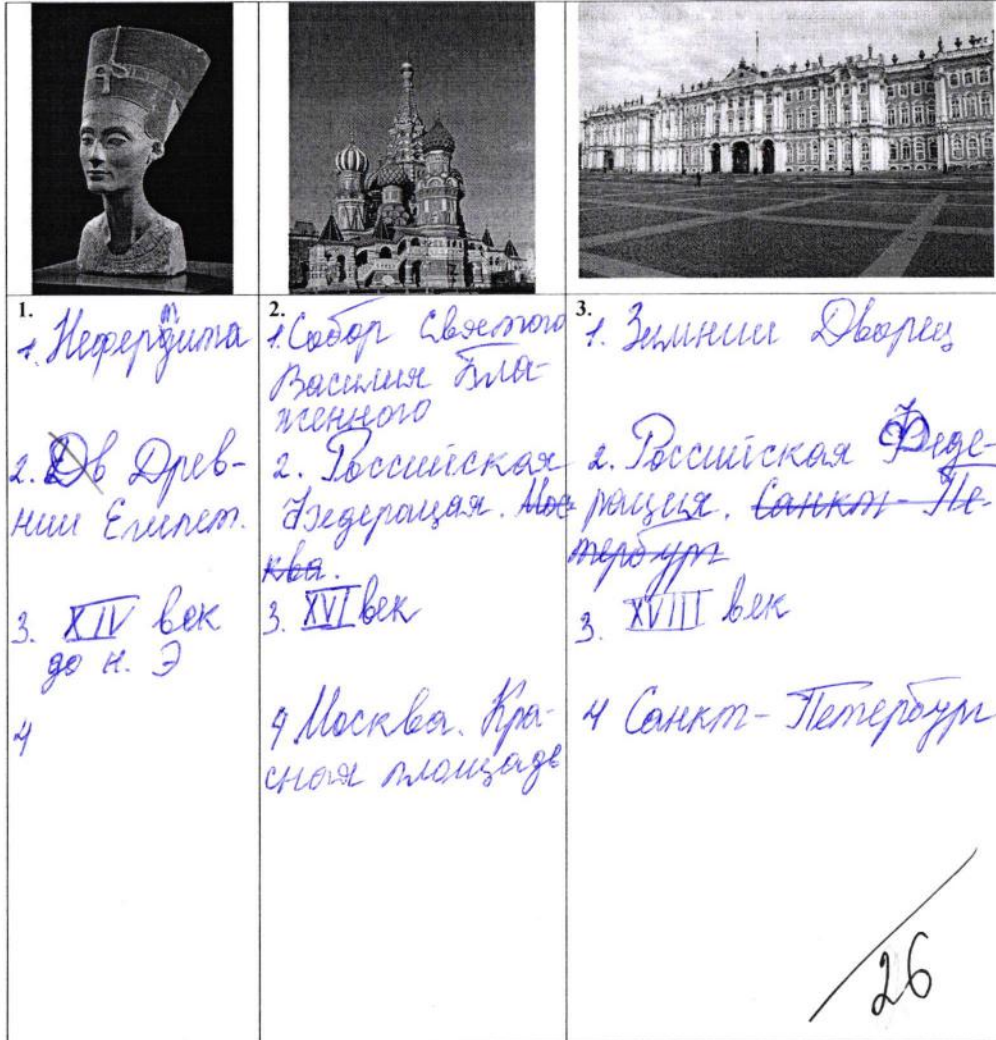 1.
1. Нефертита
2. в Древ-
нии Египет.
3. XIV век
до н. Э
4
2.
1. Собор Святого
Василия Бла-
женного
2. Российская
Федерацая. Мос-
ква.
3. XVI век
4 Москва. Кра-
сная площадь
3.
1. Зимнии Дворец
2. Российская Феде-
рация. Санкт-Пе-
тербург
3. XVIII век
4 Санкт-Петербург
26